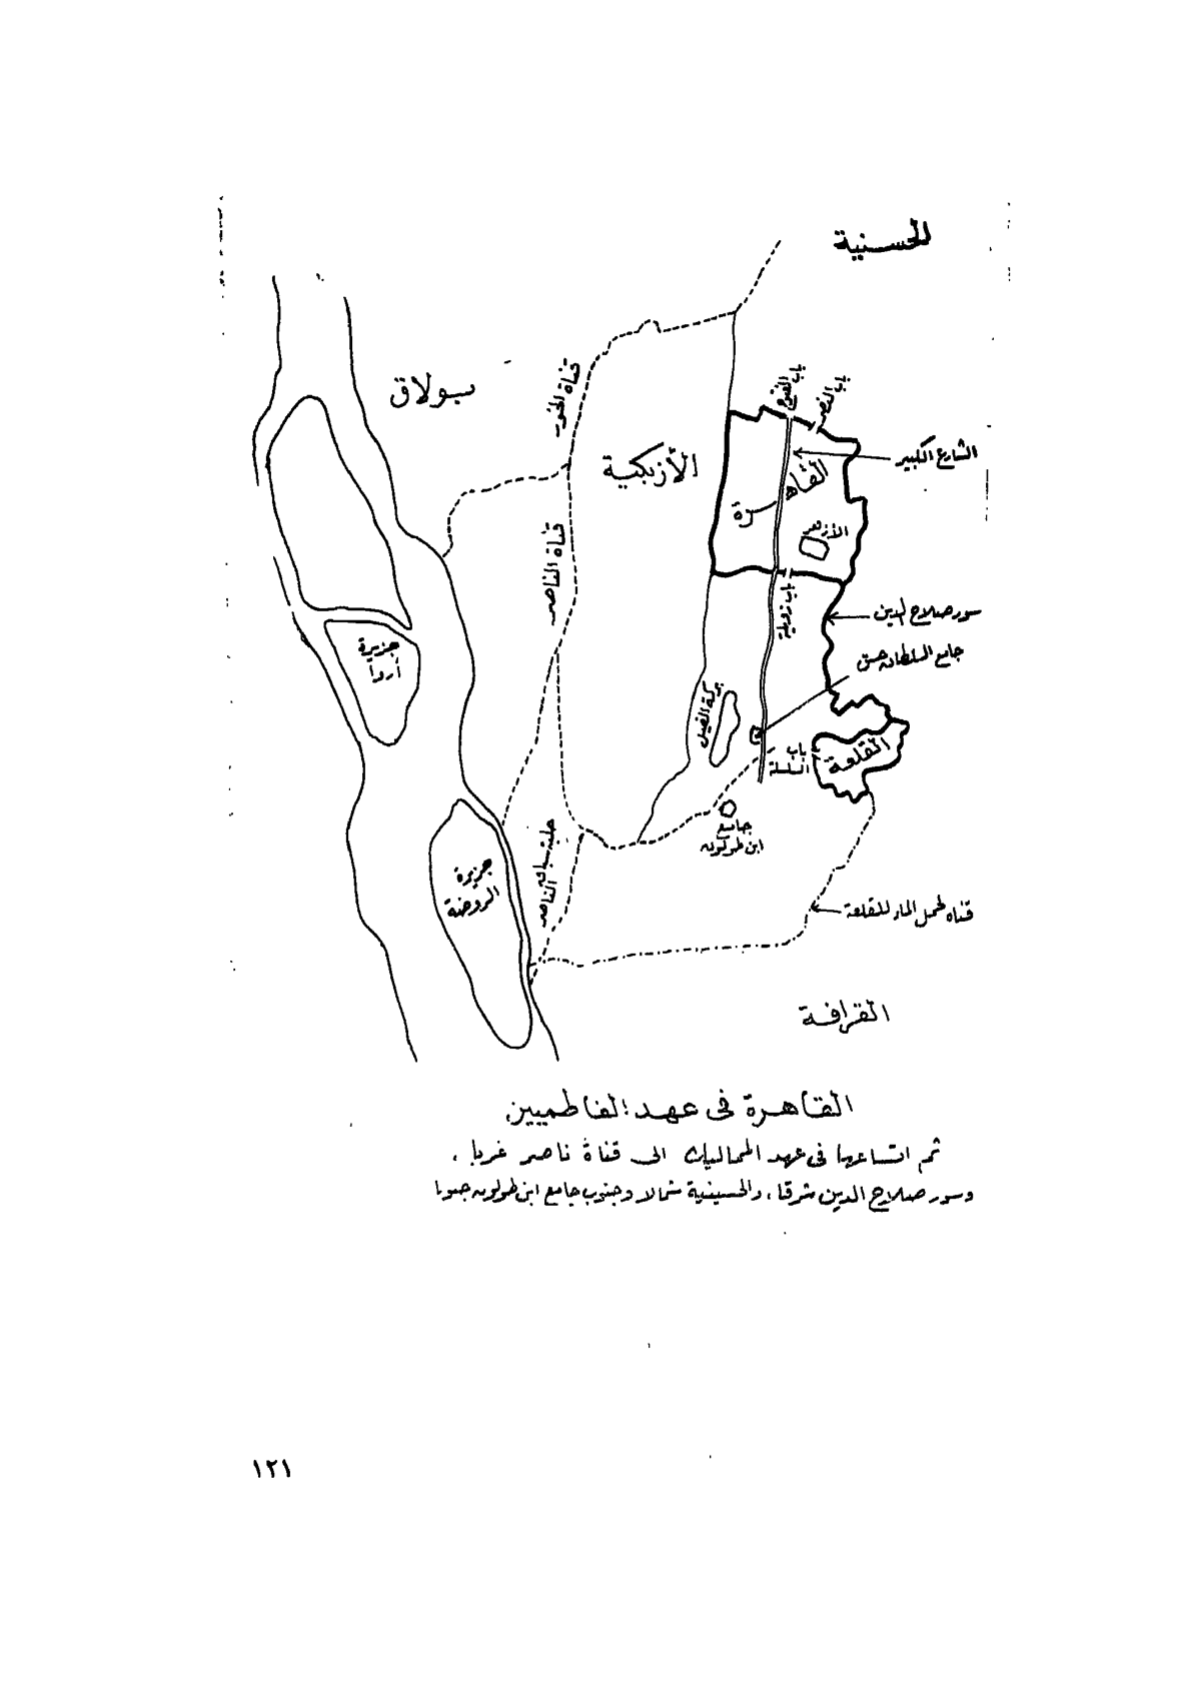 الحسنية
باب الفتوح
باب النصر
بولاق
قناة
الشارع الكبير
الأزبكية
القاهـرة
الأزهر
قناة الناصر
باب زويلة
سور صلاح الدين
جامع السلطان حسن
جزيرة
أروا
بركة الفيل
باب
السلسلة
القلعة
جامع
ابن طولون
الناصر
جزيرة
الروضة
قناه لحمل الماء للقلعة
القرافة
القاهرة فى عهد الفاطميين
ثم اتساعها فى عهد المماليك الى قناة ناصر غربا ،
وسور صلاح الدين شرقا ، والحسينية شمالا وجنوب جامع ابن طولون جنوبا
١٢١